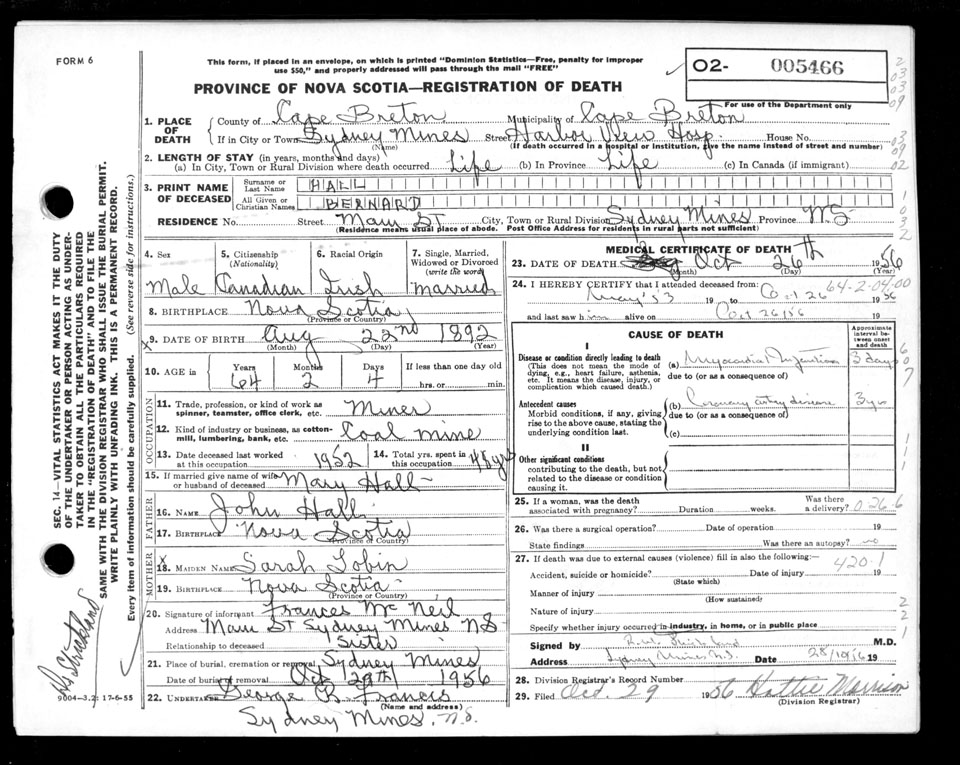 FORM 6
This form, if placed in an envelope, on which is printed "Dominion Statistics—Free, penalty for improper
use $50," and properly addressed will pass through the mail "FREE"
02- 005466
PROVINCE OF NOVA SCOTIA—REGISTRATION OF DEATH
For use of the Department only
1. PLACE OF DEATH
County of Cape Breton Municipality of Cape Breton
If in City or Town Sydney Mines Street Harbor View Hosp. House No.
(Name) (If death occurred in a hospital or institution, give the name instead of street and number)
2. LENGTH OF STAY (in years, months and days)
(a) In City, Town or Rural Division where death occurred Life (b) In Province Life (c) In Canada (if immigrant)
3. PRINT NAME OF DECEASED
Surname or Last Name HALL
All Given or Christian Names BERNARD
RESIDENCE No. Street Main St City, Town or Rural Division Sydney Mines Province N.S.
(Residence means usual place of abode. Post Office Address for residents in rural parts not sufficient)
4. Sex 5. Citizenship (Nationality) 6. Racial Origin 7. Single, Married, Widowed or Divorced (write the word)
Male Canadian Irish Married
8. BIRTHPLACE Nova Scotia
(Province or Country)
9. DATE OF BIRTH Aug 22nd 1892
(Month) (Day) (Year)
10. AGE in Years Months Days If less than one day old
64 2 4 hrs. or min.
OCCUPATION
11. Trade, profession, or kind of work as
spinner, teamster, office clerk, etc. Miner
12. Kind of industry or business, as cotton-
mill, lumbering, bank, etc. Coal Mine
13. Date deceased last worked
at this occupation 1952
14. Total yrs. spent in
this occupation 48 yrs
15. If married give name of wife
or husband of deceased Mary Hall
FATHER
16. NAME John Hall
17. BIRTHPLACE Nova Scotia
(Province or Country)
MOTHER
18. MAIDEN NAME Sarah Tobin
19. BIRTHPLACE Nova Scotia
(Province or Country)
20. Signature of informant Frances McNeil
Address Main St Sydney Mines NS
Relationship to deceased Sister
21. Place of burial, cremation or removal Sydney Mines
Date of burial or removal Oct 29th 1956
22. UNDERTAKER George B. Francis
(Name and address)
Sydney Mines, N.S.
MEDICAL CERTIFICATE OF DEATH
23. DATE OF DEATH Oct 26th 1956
(Month) (Day) (Year)
24. I HEREBY CERTIFY that I attended deceased from: 64-2-04-00
May '53 19 to Oct 26 1956
and last saw him alive on Oct 26/56 19
CAUSE OF DEATH
Approximate interval between onset and death
I
Disease or condition directly leading to death
(This does not mean the mode of
dying, e.g., heart failure, asthenia,
etc. It means the disease, injury, or
complication which caused death.)
(a) Myocardial 3 days
due to (or as a consequence of)
Antecedent causes
Morbid conditions, if any, giving
rise to the above cause, stating the
underlying condition last.
(b) Coronary artery disease 3 yrs
due to (or as a consequence of)
(c)
II
Other significant conditions
contributing to the death, but not
related to the disease or condition
causing it.
25. If a woman, was the death
associated with pregnancy? Duration weeks. Was there
a delivery? 0.26.6
26. Was there a surgical operation? Date of operation 19
State findings Was there an autopsy? no
27. If death was due to external causes (violence) fill in also the following:—
420.1
Accident, suicide or homicide? Date of injury 19
(State which)
Manner of injury
(How sustained)
Nature of injury
Specify whether injury occurred in industry, in home, or in public place
Signed by M.D.
Address Sydney Mines N.S. Date 28/10/56 19
28. Division Registrar's Record Number
29. Filed Oct. 29 1956 Hattie Morrison
(Division Registrar)
SEC. 14—VITAL STATISTICS ACT MAKES IT THE DUTY
OF THE UNDERTAKER OR PERSON ACTING AS UNDER-
TAKER TO OBTAIN ALL THE PARTICULARS REQUIRED
IN THE "REGISTRATION OF DEATH" AND TO FILE THE
SAME WITH THE DIVISION REGISTRAR WHO SHALL ISSUE THE BURIAL PERMIT.
WRITE PLAINLY WITH UNFADING INK. THIS IS A PERMANENT RECORD.
Every item of information should be carefully supplied. (See reverse side for instructions.)
9004-3.2; 17-6-55